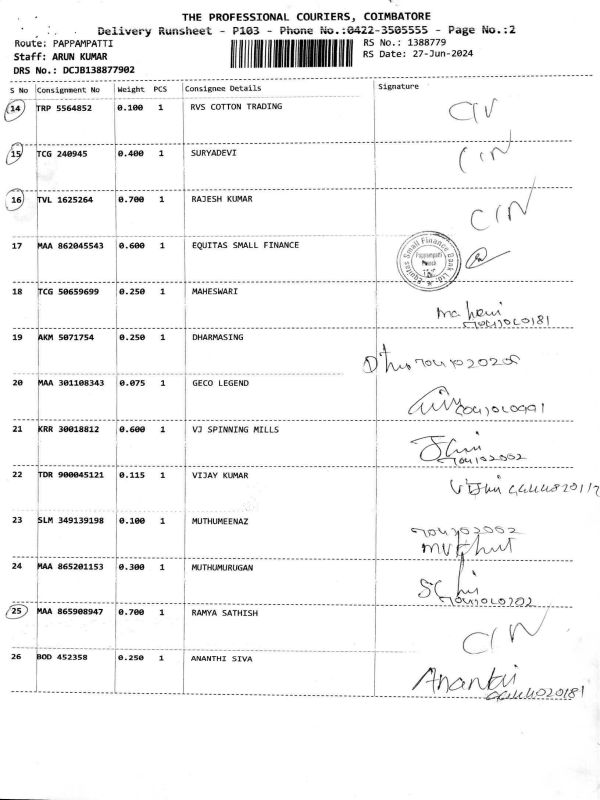 THE PROFESSIONAL COURIERS, COIMBATORE
Delivery Runsheet - P103 - Phone No.:0422-3505555 - Page No.:2
Route: PAPPAMPATTI
RS No.: 1388779
Staff: ARUN KUMAR
RS Date: 27-Jun-2024
DRS No.: DCJB138877902
S No Consignment No Weight PCS Consignee Details Signature
14 TRP 5564852 0.100 1 RVS COTTON TRADING
15 TCG 240945 0.400 1 SURYADEVI
16 TVL 1625264 0.700 1 RAJESH KUMAR
17 MAA 862045543 0.600 1 EQUITAS SMALL FINANCE
Equitas Small Finance Bank Ltd.
Pappampatti
Branch
18 TCG 50659699 0.250 1 MAHESWARI
19 AKM 5071754 0.250 1 DHARMASING
20 MAA 301108343 0.075 1 GECO LEGEND
21 KRR 30018812 0.600 1 VJ SPINNING MILLS
22 TDR 900045121 0.115 1 VIJAY KUMAR
23 SLM 349139198 0.100 1 MUTHUMEENAZ
24 MAA 865201153 0.300 1 MUTHUMURUGAN
25 MAA 865908947 0.700 1 RAMYA SATHISH
26 BOD 452358 0.250 1 ANANTHI SIVA